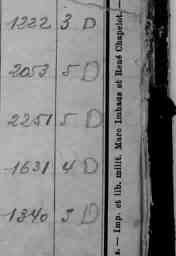 1222 3 D
2053 5 D
2251 5 D
1631 4 D
1340 3 D
s. — Imp. et lib. milit. Marc Imhaus et René Chapelot.